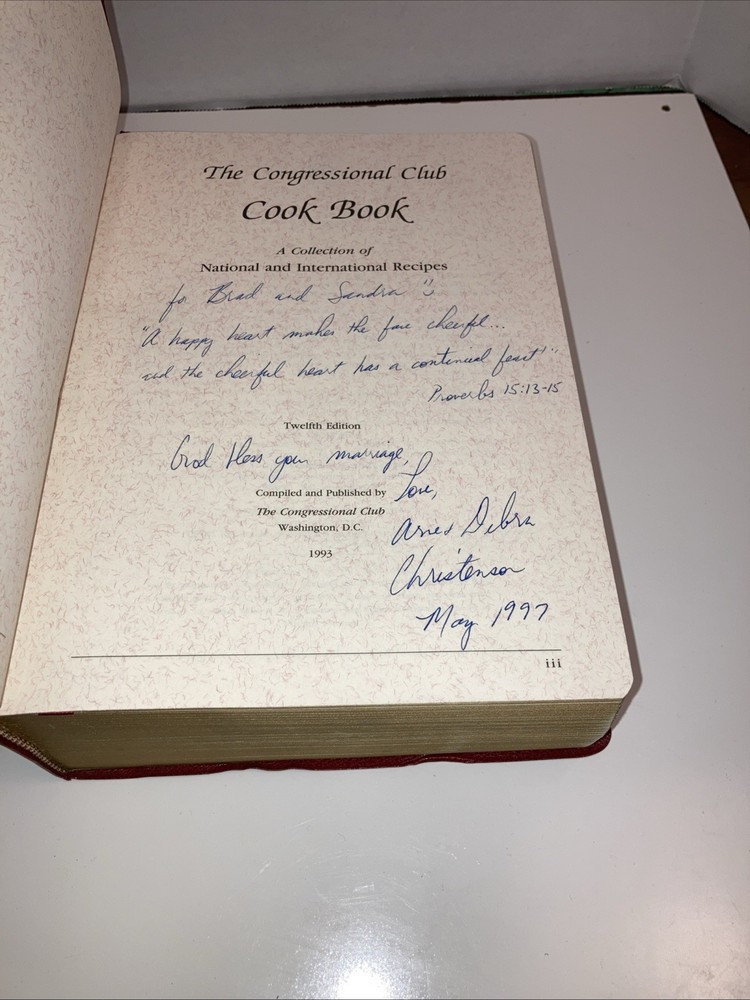 The Congressional Club
Cook Book
A Collection of
National and International Recipes
for Brad and Sandra
"A happy heart makes the face cheerful...
and the cheerful heart has a continual feast"
Proverbs 15:13-15
Twelfth Edition
God bless your marriage,
Love,
Compiled and Published by
The Congressional Club
Washington, D.C.
1993
Arne & Debra
Christenson
May 1997
iii